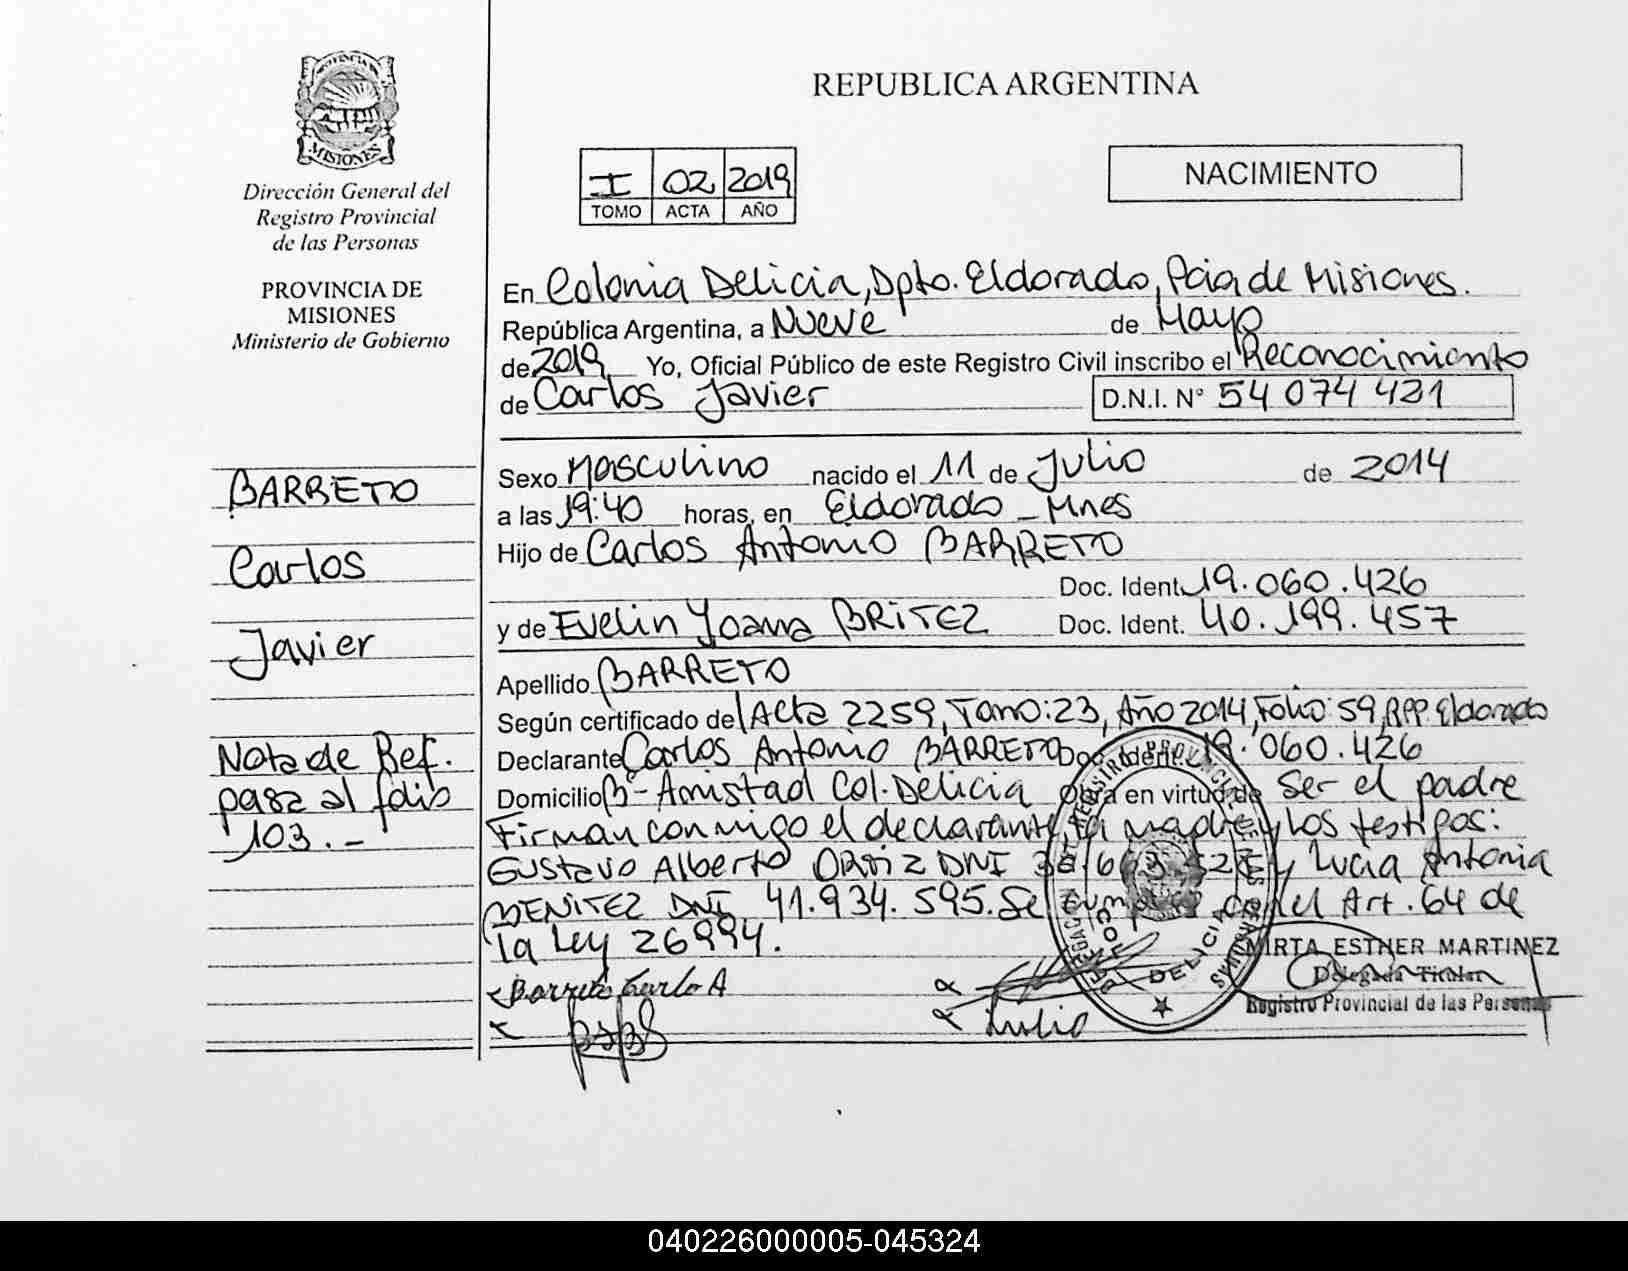 PROVINCIA DE
MISIONES
Dirección General del
Registro Provincial
de las Personas
PROVINCIA DE
MISIONES
Ministerio de Gobierno
BARRETO
Carlos
Javier
Nota de Ref.
pasa al folio
103.-
REPUBLICA ARGENTINA
I 02 2019
TOMO ACTA AÑO
NACIMIENTO
En Colonia Delicia, Dpto. Eldorado, Pcia de Misiones.
República Argentina, a Nueve de Mayo
de 2019 Yo, Oficial Público de este Registro Civil inscribo el Reconocimiento
de Carlos Javier D.N.I. N° 54 074 421
Sexo Masculino nacido el 11 de Julio de 2014
a las 19:40 horas, en Eldorado - Mnes
Hijo de Carlos Antonio BARRETO
Doc. Ident. 19.060.426
y de Evelin Yoana BRITEZ Doc. Ident. 40.199.457
Apellido BARRETO
Según certificado de Acta 2259, Tomo: 23, Año 2014, Folio: 59, RPP. Eldorado
Declarante Carlos Antonio BARRETO Doc. Ident. 19.060.426
Domicilio B°- Amistad Col. Delicia obra en virtud de Ser el padre
Firman conmigo el declarante, la madre y los testigos:
Gustavo Alberto ORTIZ DNI y Lucia Antonia
BENITEZ DNI. 41.934.595. Se cumple con el Art. 64 de
la Ley 26994.
Barreto Carlo A
MIRTA ESTHER MARTINEZ
Delegada Titular
Registro Provincial de las Personas
DELICIA
040226000005-045324